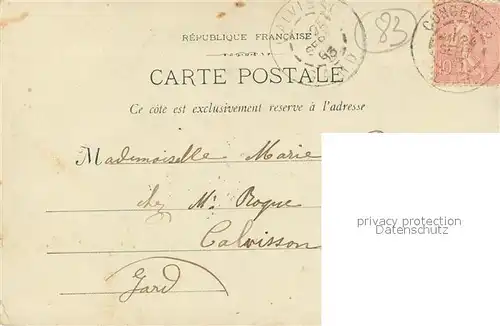 CALVISSON
83
CONGENIES
RÉPUBLIQUE FRANÇAISE
CARTE POSTALE
Ce côte est exclusivement reserve à l'adresse
Mademoiselle Marie
chez Mr Roque
Calvisson
Gard
privacy protection
Datenschutz